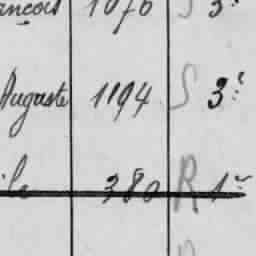 ançois 1076 S 3e
Auguste 1194 S 3e
ile 380 R 1er